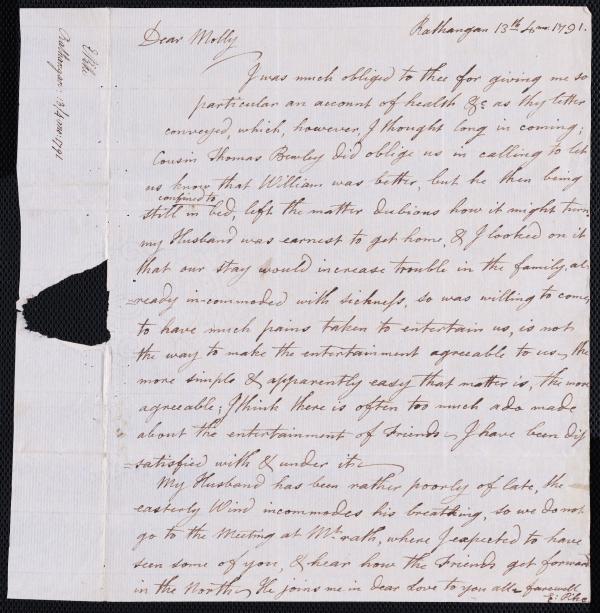 Rathangan 13th. 4mo. 1791.
Dear Molly
I was much obliged to thee for giving me so
particular an account of health &c as thy letter
conveyed, which, however, I thought long in coming;
Cousin Thomas Bewley did oblige us in calling to let
us know that William was better, but he then being
confined to
still in bed, left the matter dubious how it might turn,
my Husband was earnest to get home, & I looked on it
that our stay would increase trouble in the family, al-
=ready in-commoded with sickness, so was willing to come,
to have much pains taken to entertain us, is not
the way to make the entertainment agreeable to us, the
more simple & apparently easy that matter is, the more
agreeable; I think there is often too much ado made
about the entertainment of Friends, I have been dis
=satisfied with & under it.
My Husband has been rather poorly of late, the
easterly Wind incommodes his breathing, so we do not
go to the Meeting at Mt.rath, where I expected to have
seen some of you, & hear how the Friends get forward
in the North. He joins me in dear Love to you all. farewell
Rathangan: 13/4 mo: 1791